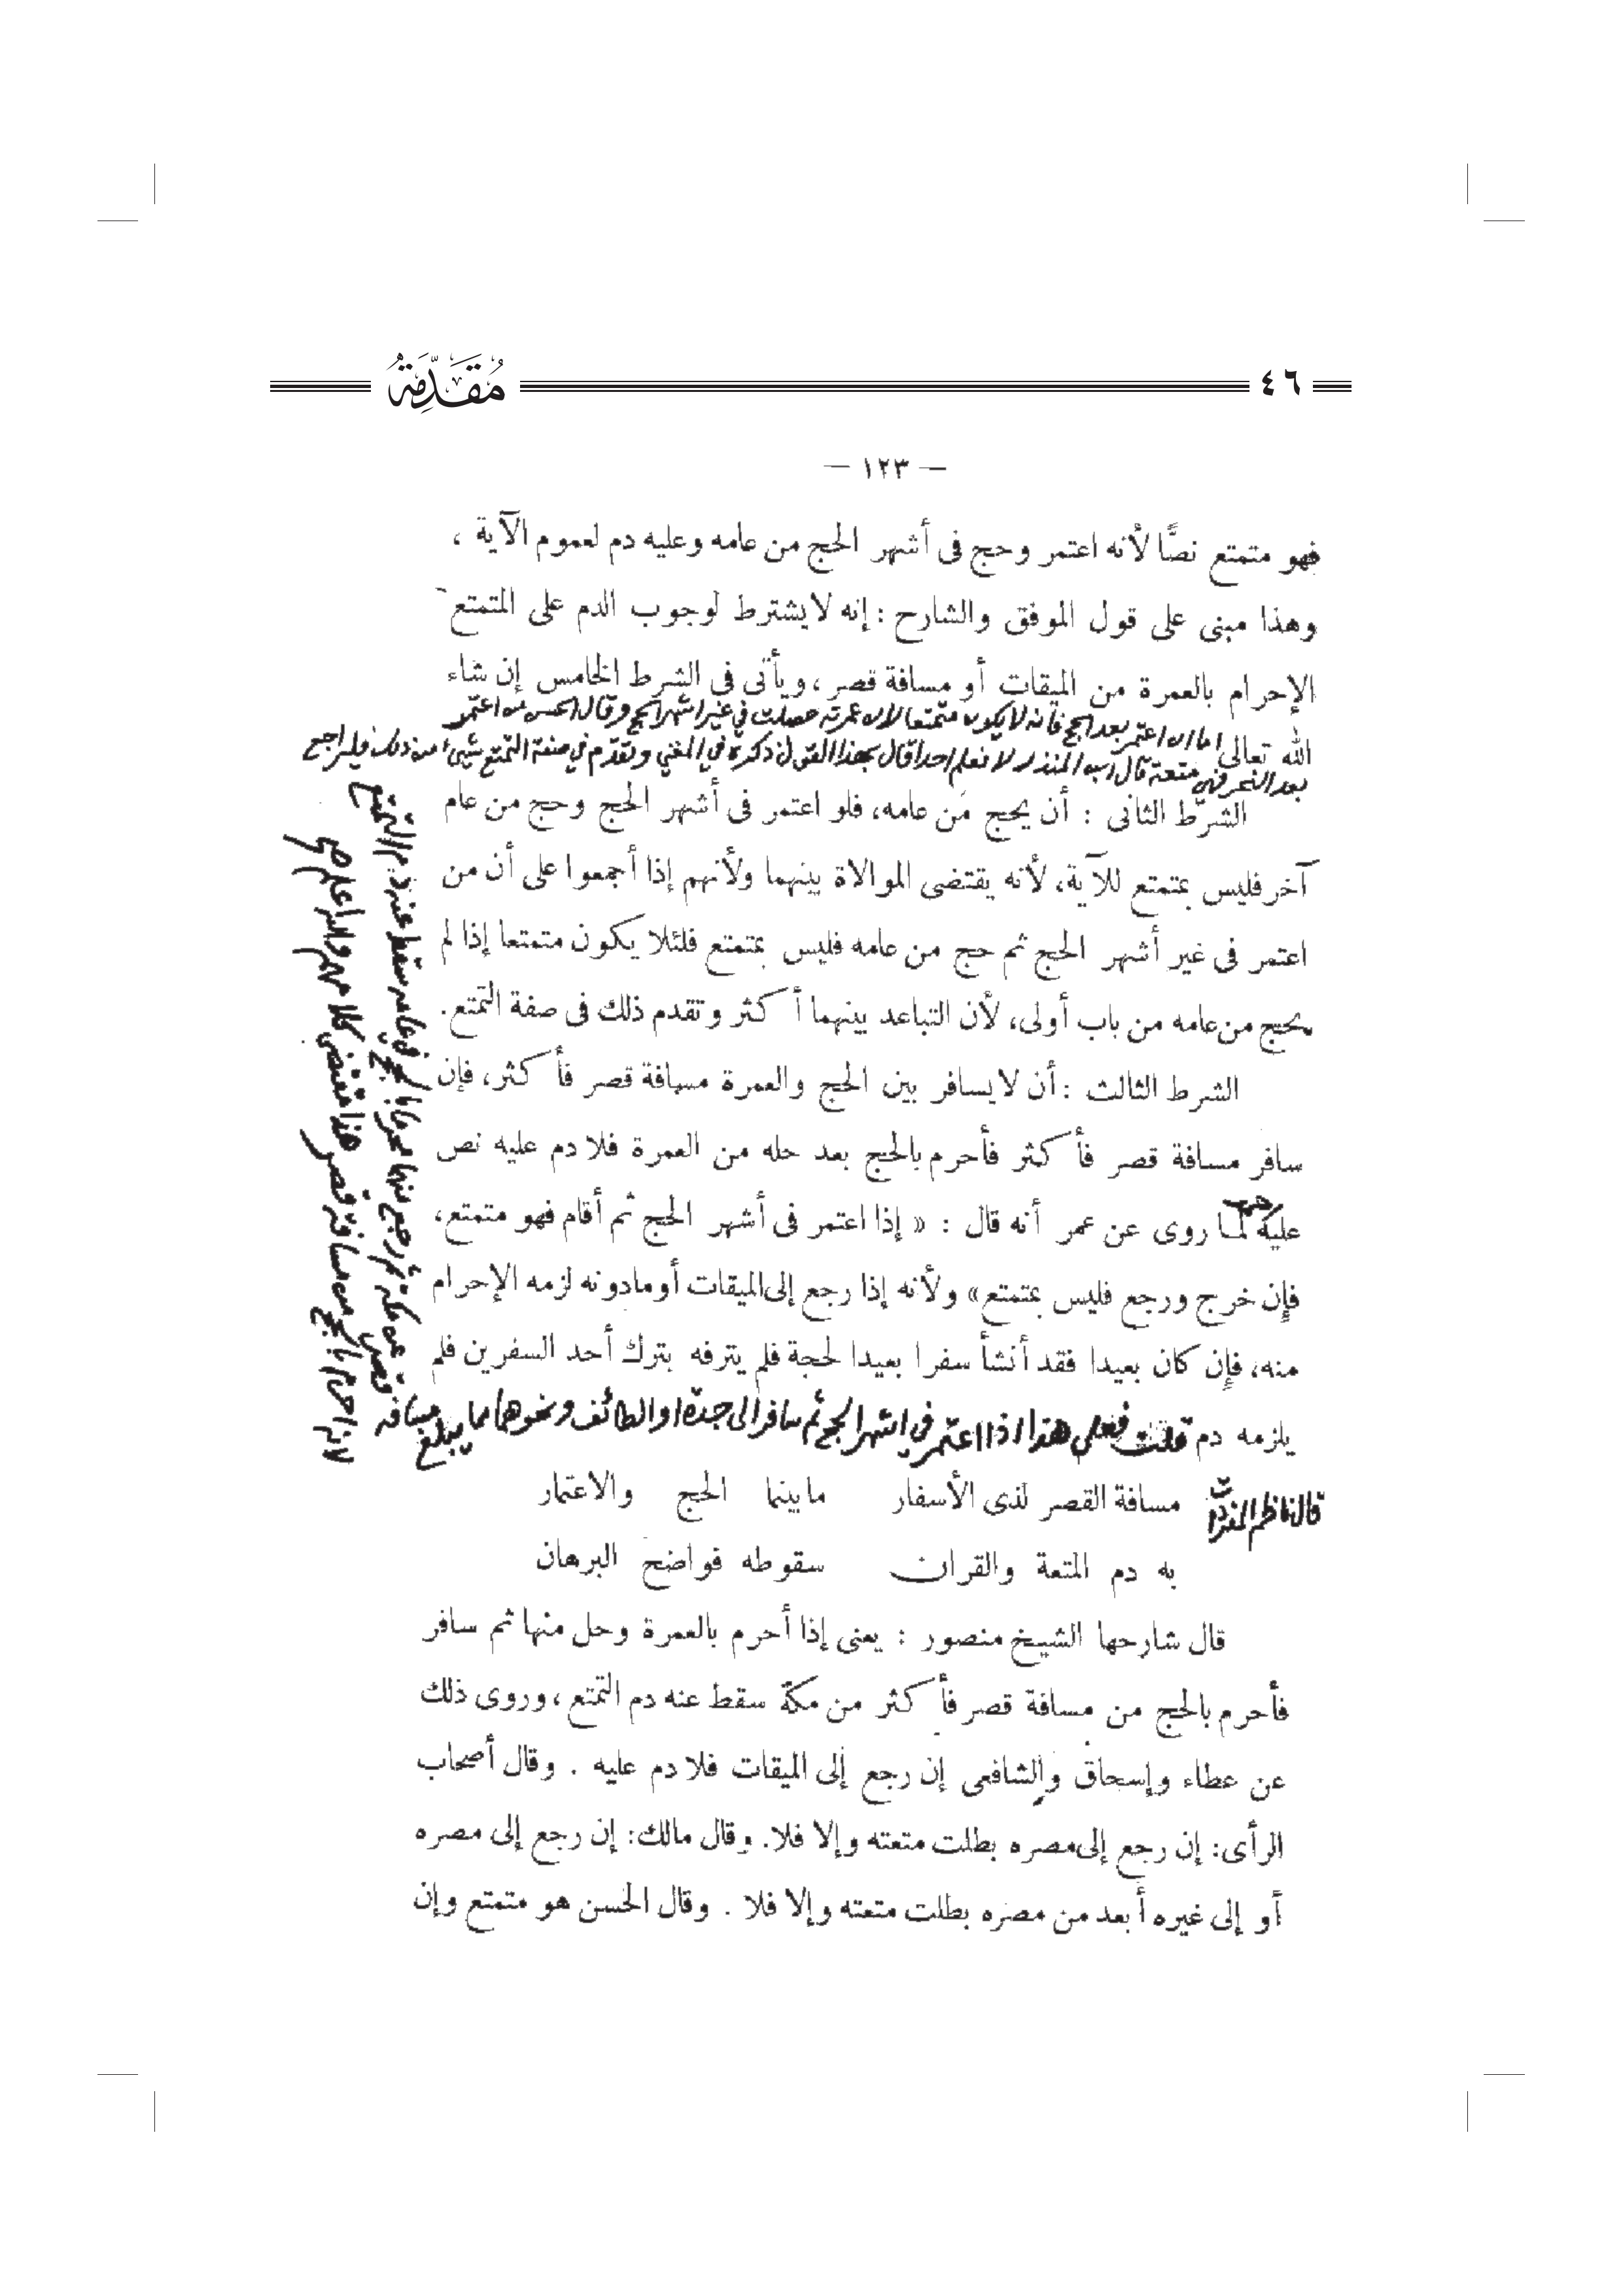 ٤٦
مُقَدِّمَةٌ
— ١٢٣ —
فهو متمتع نصًّا لأنه اعتمر وحج فى أشهر الحج من عامه وعليه دم لعموم الآية ،
وهذا مبنى على قول الموفق والشارح : إنه لايشترط لوجوب الدم على المتمتع
الإحرام بالعمرة من الميقات أو مسافة قصر ، ويأتى فى الشرط الخامس إن شاء
الله تعالى اما ان اعتمر بعد الحج فانه لا يكون متمتعا لان عمرته حصلت في غير اشهر الحج وقال الحسن من اعتمر
بعد النحر فهي متعة قال ابن المنذر لا نعلم احدا قال بهذا القول ذكره في المغني وتقدم في صفة التمتع شيء من ذلك فليراجع
الشرط الثانى : أن يحج من عامه، فلو اعتمر فى أشهر الحج وحج من عام
آخر فليس بمتمتع للآية، لأنه يقتضى الموالاة بينهما ولأنهم إذا أجمعوا على أن من
اعتمر فى غير أشهر الحج ثم حج من عامه فليس بمتمتع فلئلا يكون متمتعا إذا لم
يحج من عامه من باب أولى، لأن التباعد بينهما أكثر وتقدم ذلك فى صفة التمتع.
الشرط الثالث : أن لايسافر بين الحج والعمرة مسافة قصر فأكثر، فإن
سافر مسافة قصر فأكثر فأحرم بالحج بعد حله من العمرة فلا دم عليه نص
عليه لما روى عن عمر أنه قال : « إذا اعتمر فى أشهر الحج ثم أقام فهو متمتع،
فإن خرج ورجع فليس بمتمتع» ولأنه إذا رجع إلى الميقات أومادونه لزمه الإحرام
منه، فإن كان بعيدا فقد أنشأ سفرا بعيدا لحجة فلم يترفه بترك أحد السفرين فلم
يلزمه دم قلت فعلى هذا اذا اعتمر في اشهر الحج ثم سافر الى جدة او الطائف ونحوها مما يبلغ مسافة
قصر عن مكة ثم رجع منها محرما بالحج في عامه سقط عنه دم التمتع
لانه احرم بالحج من مسافة قصر هذا مقتضى كلامهم والله اعلم
قال ناظم المفردات
مسافة القصر لذى الأسفار مابينما الحج والاعتمار
به دم المتعة والقران سقوطه فواضح البرهان
قال شارحها الشيخ منصور : يعنى إذا أحرم بالعمرة وحل منها ثم سافر
فأحرم بالحج من مسافة قصر فأكثر من مكة سقط عنه دم التمتع ، وروى ذلك
عن عطاء وإسحاق والشافعى إن رجع إلى الميقات فلا دم عليه . وقال أصحاب
الرأى: إن رجع إلى مصره بطلت متعته وإلا فلا. وقال مالك: إن رجع إلى مصره
أو إلى غيره أبعد من مصره بطلت متعته وإلا فلا . وقال الحسن هو متمتع وإن